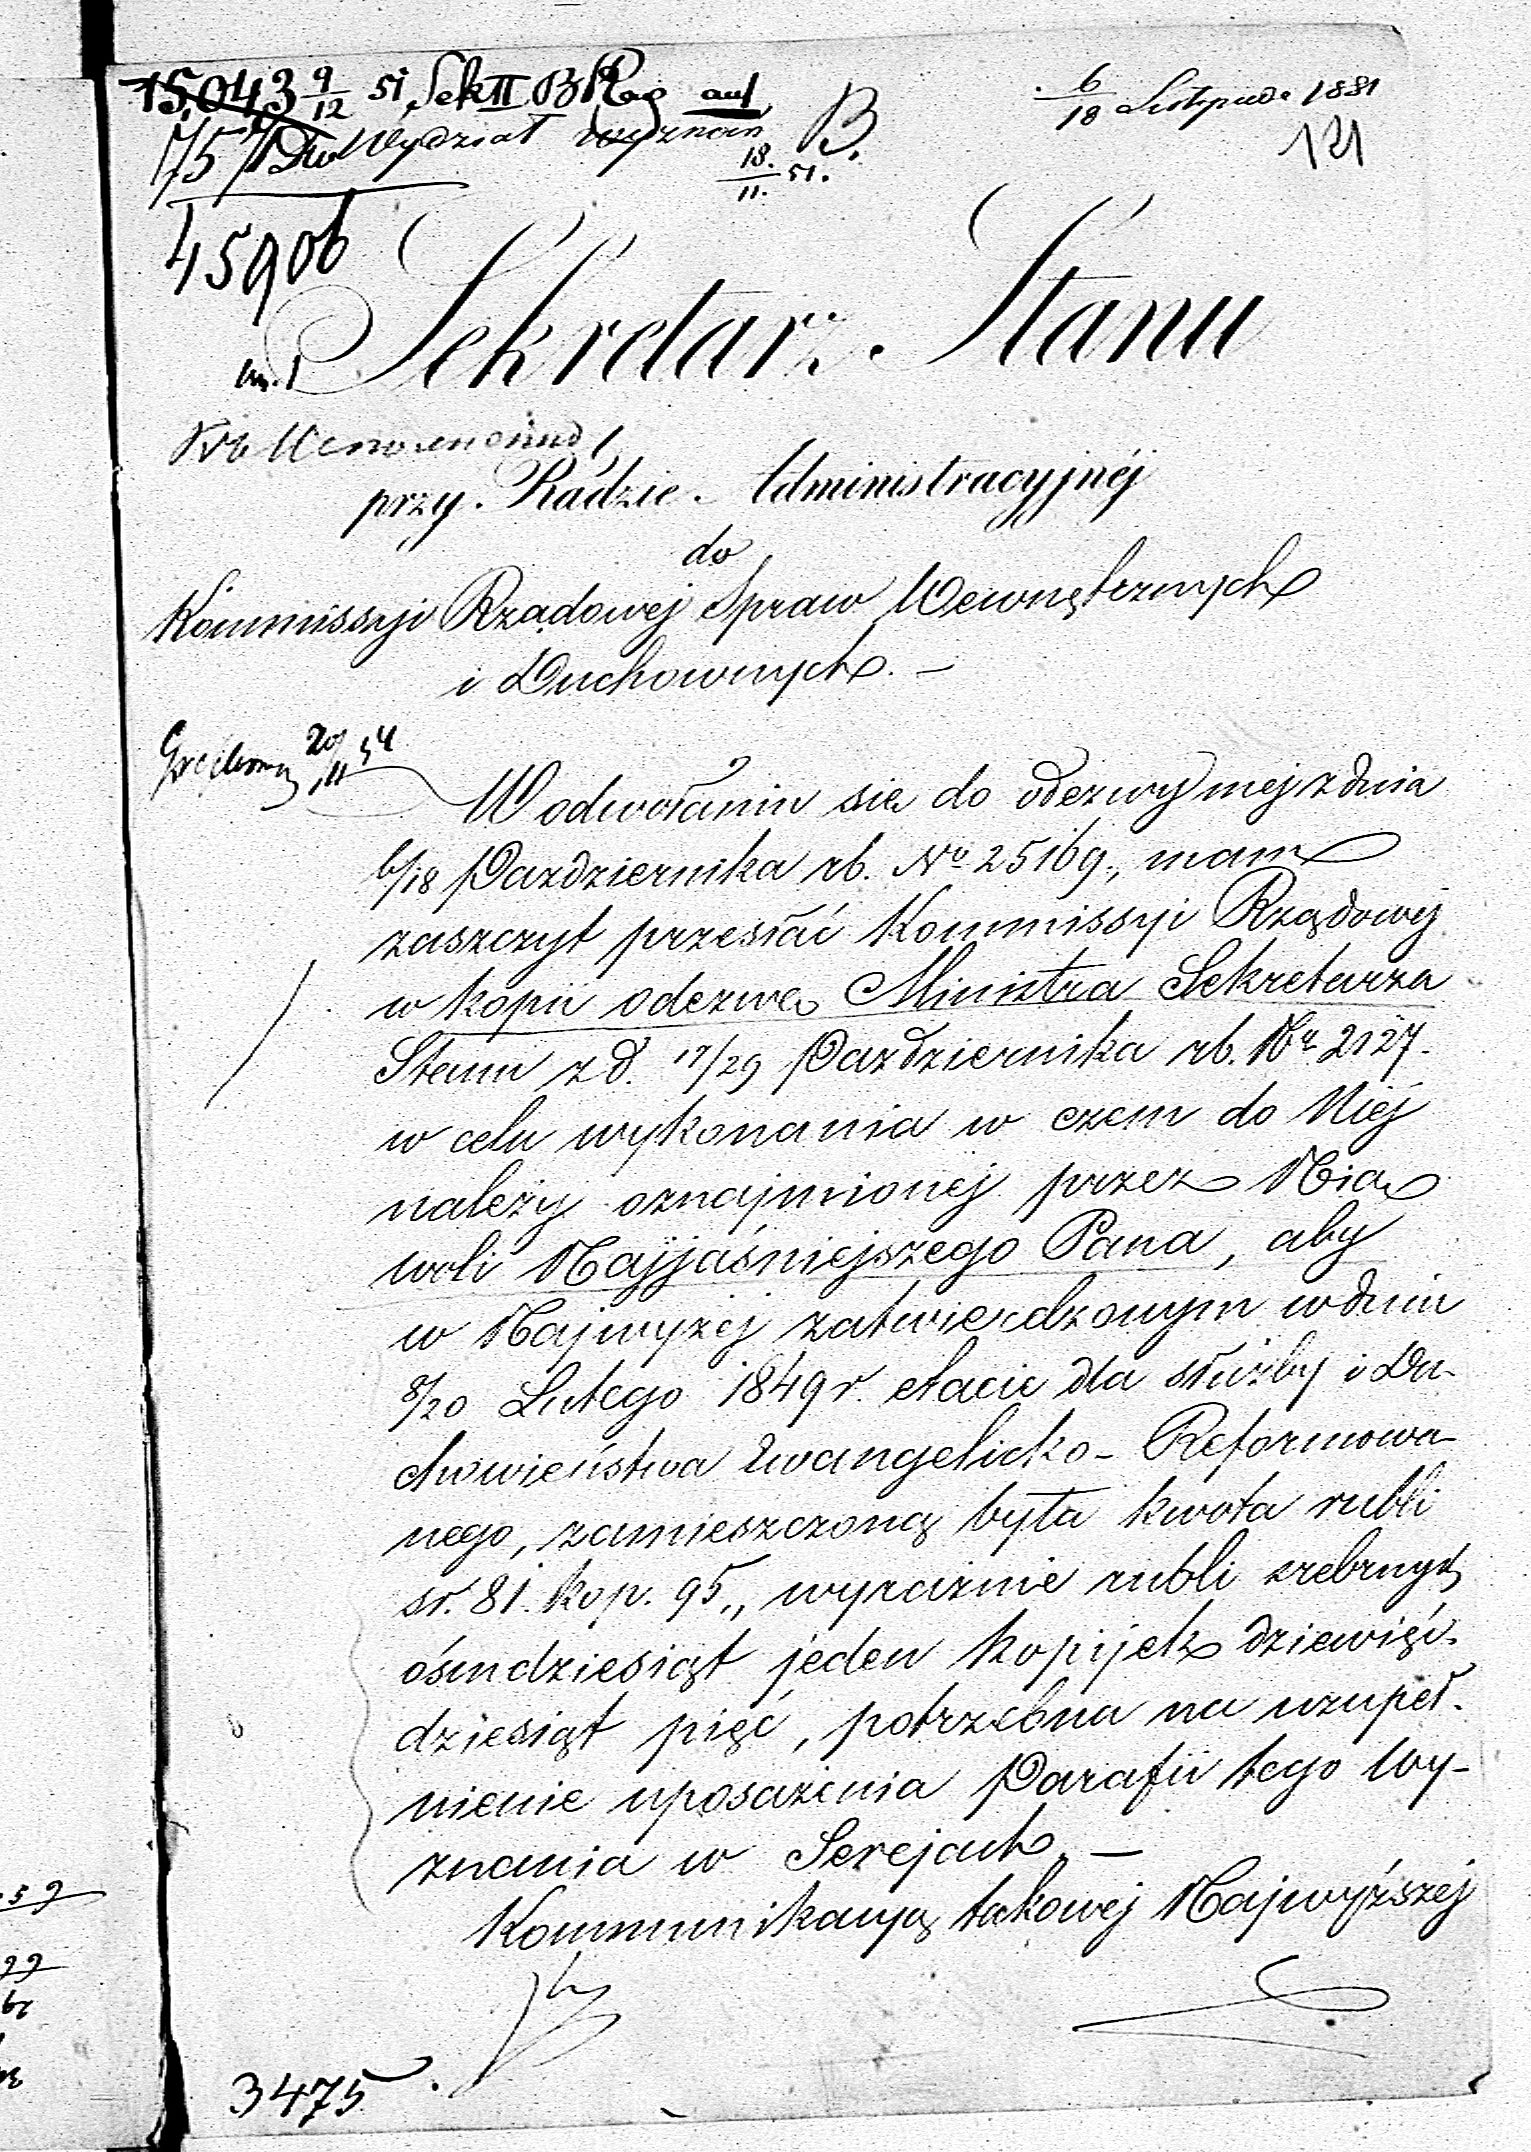 15,043 9/12 51 Sek II B
6/18 Listopada 1851
121
757 Wydział wyznań
B.
18./11. 51.
45906
Sekretarz. Stanu
przy. Radzie. Administracyjnéj
do
Kommissyi Rządowej Spraw Wewnętrznych
i Duchownych. –
20/11 54
W odwołaniu się do odezwy mej z dnia
6/18 Pazdziernika rb. No 25169, mam
zaszczyt przesłać Kommissyi Rządowej
w kopii odezwę Ministra Sekretarza
Stanu z d. 17/29 Pazdziernika rb. No 2127.
w celu wykonania w czem do Niéj
należy oznajmionej przez Nią
woli Najjaśniejszego Pana, aby
w Najwyżej zatwierdzonym w dniu
8/20 Lutego 1849 r. etacie dla służby i Du-
chowieństwa Ewangelicko-Reformowa-
nego, zamieszczoną była kwota rubli
sr. 81. kop. 95., wyraźnie rubli srebrnych
ośmdziesiąt jeden kopijek dziewięć-
dziesiąt pięć, potrzebna na uzupeł-
nienie uposażenia Parafii tego Wy-
znania w Serejach. –
Kommunikacyą takowej Najwyższéj
3475
59
99